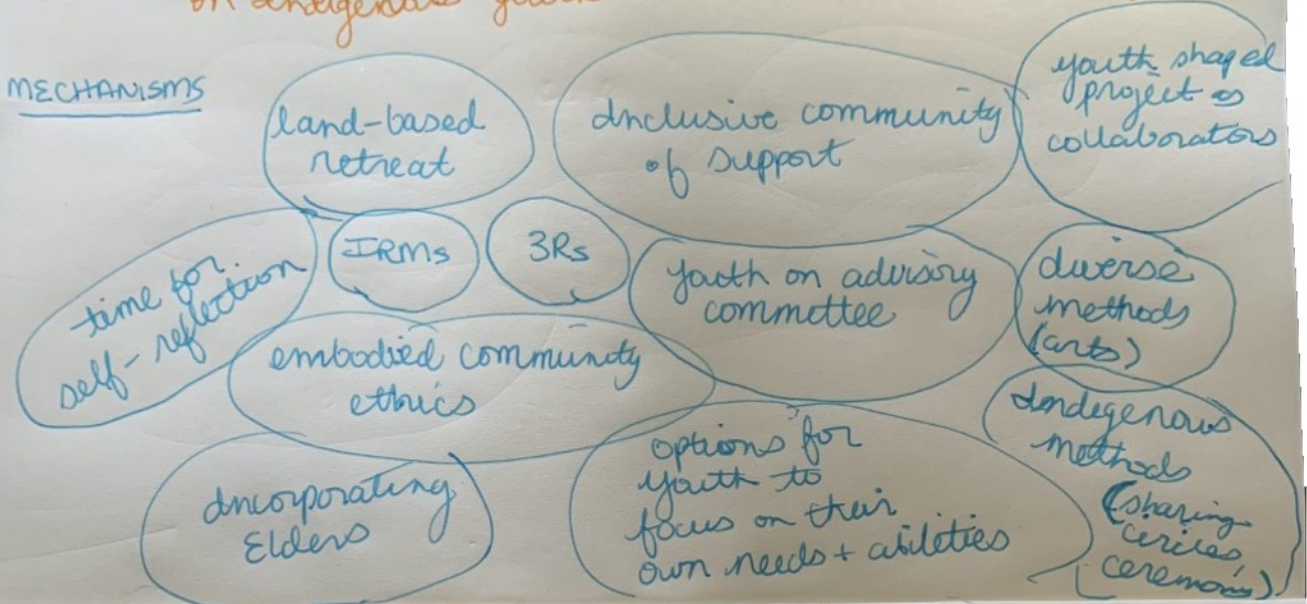 on indigenous
MECHANISMS
land-based
retreat
Inclusive community
of support
youth shaped
project as
collaborators
time for
self-reflection
IRMs
3Rs
youth on advisory
committee
diverse
methods
(arts)
embodied community
ethics
Indigenous
methods
(sharing
circles,
ceremony)
Incorporating
Elders
options for
youth to
focus on their
own needs + abilities